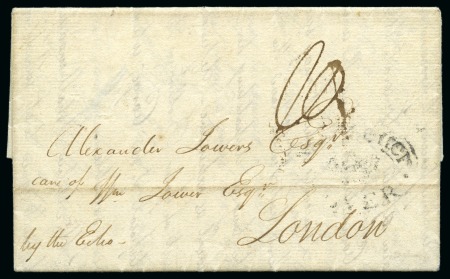 Alexander Towers Esqr.
care of Wm Tower Esqr.
London
by the Echo